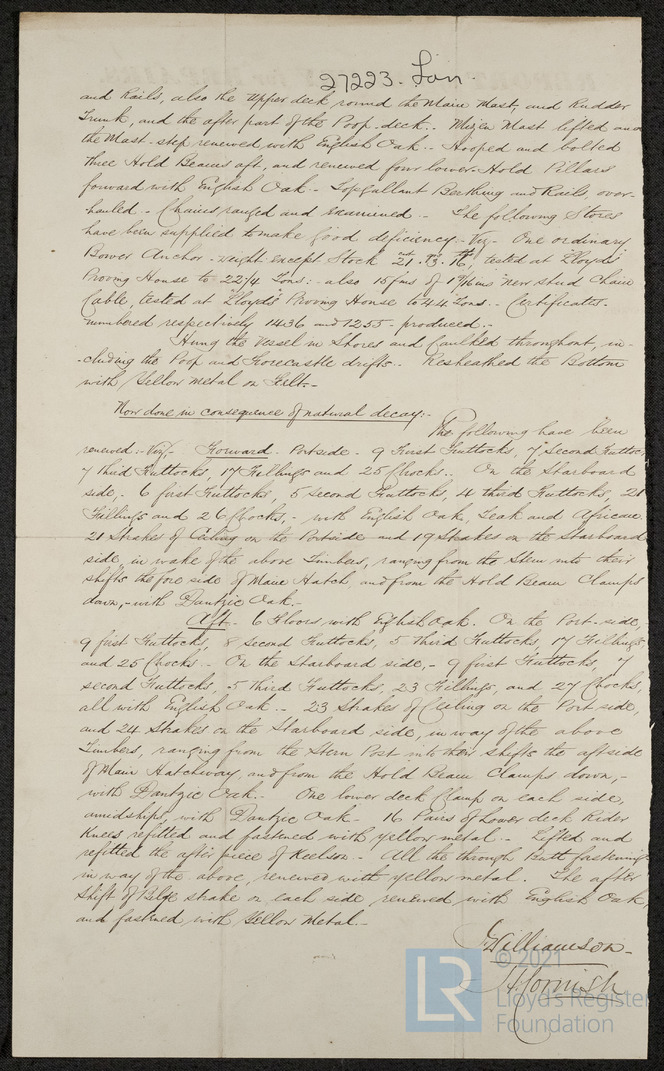 27223. Lon
and Rails, also the upper deck round the Main Mast, and Rudder
Trunk, and the after part of the Poop deck.. Mizen Mast lifted and
the Mast-step renewed with English Oak.- Hooped and bolted
three Hold Beams aft, and renewed four lower Hold Pillars
forward with English Oak- Topgallant Berthing and Rails, over-
-hauled - Chains ranged and examined - The following Stores
have been supplied to make good deficiency:- Viz- One ordinary
Bower Anchor - weight except Stock 21. 3. tested at Lloyds'
Proving House to 22¼ Tons:- also 15 fms of 1 9/16 ins new stud Chain
Cable, tested at Lloyds' Proving House to 44 Tons.- Certificates-
numbered respectively 1436 and 1255- produced.-
Hung the Vessel in Shores and Caulked throughout, in-
-cluding the Poop and Forecastle drifts.. Resheathed the Bottom
with Yellow Metal on Felt.-
Now done in consequence of natural decay:-
The following have been
renewed:- Viz- Forward. Port side - 9 First Futtocks, 7 Second Futtocks
7 third Futtocks, 17 Fillings and 25 Chocks.. On the Starboard
side,- 6 first Futtocks, 5 second Futtocks, 4 third Futtocks, 21
Fillings and 26 Chocks,- with English Oak, Teak and African
21 Strakes of Ceiling on the Port side and 19 Strakes on the Starboard
side, in wake of the above Timbers, ranging from the Stem into their
shifts the fore side of Main Hatch, and from the Hold Beam Clamps
down,- with Dantzic Oak.-
Aft. 6 Floors with English Oak. On the Port-side,-
9 first Futtocks, 8 second Futtocks, 5 third Futtocks, 17 Fillings
and 25 Chocks.- On the Starboard side,- 9 first Futtocks, 7
second Futtocks, 5 third Futtocks, 23 Fillings, and 27 Chocks,
all with English Oak.- 23 Strakes of Ceiling on the Port side,
and 24 Strakes on the Starboard side, in way of the above
Timbers, ranging from the Stern Post into their shifts the aft side
of Main Hatchway, and from the Hold Beam Clamps down,-
with Dantzic Oak.- One lower deck Clamp on each side,
amidships, with Dantzic Oak- 16 Pairs of Lower deck Rider
Knees refitted and fastened with yellow metal.- Lifted and
refitted the after piece of Keelson.- All the through Butt fastenings
in way of the above, renewed with yellow metal. The after
shift of Bilge strake on each side renewed with English Oak,
and fastened with Yellow Metal.-
Williamson-
H. Cornish
LR
© 2021
Lloyd's Register
Foundation